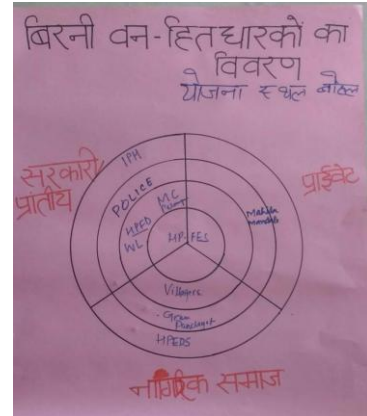 बिरनी वन-हितधारकों का
विवरण
योजना स्थल
सरकारी
प्रांतीय
प्राईवेट
IPH
POLICE
MC
HPFD
WL
HP-FES
Mahila
Mandals
Villagers
Gram
Panchayat
HPEDS
नागरिक समाज